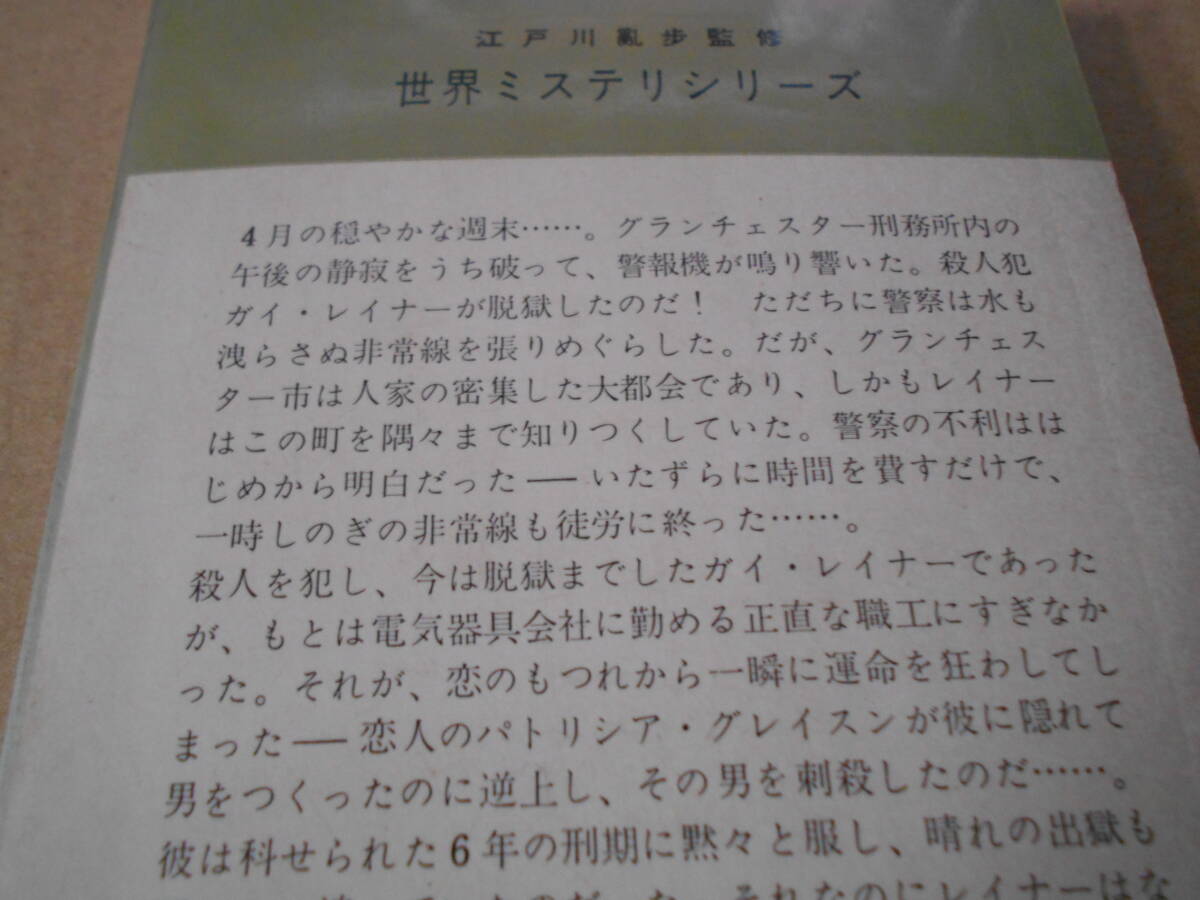 江戸川亂歩監修
世界ミステリシリーズ
4月の穏やかな週末……。グランチェスター刑務所内の
午後の静寂をうち破って、警報機が鳴り響いた。殺人犯
ガイ・レイナーが脱獄したのだ！　ただちに警察は水も
洩らさぬ非常線を張りめぐらした。だが、グランチェス
ター市は人家の密集した大都会であり、しかもレイナー
はこの町を隅々まで知りつくしていた。警察の不利はは
じめから明白だった――いたずらに時間を費すだけで、
一時しのぎの非常線も徒労に終った……。
殺人を犯し、今は脱獄までしたガイ・レイナーであった
が、もとは電気器具会社に勤める正直な職工にすぎなか
った。それが、恋のもつれから一瞬に運命を狂わしてし
まった――恋人のパトリシア・グレイスンが彼に隠れて
男をつくったのに逆上し、その男を刺殺したのだ……。
彼は科せられた6年の刑期に黙々と服し、晴れの出獄も
それなのにレイナーはな